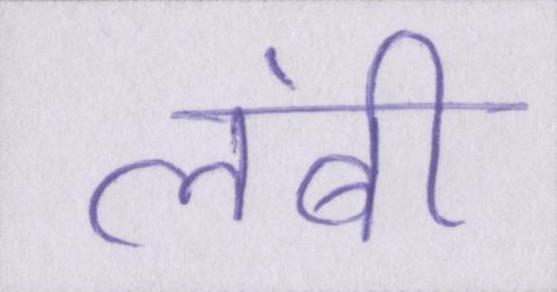 लंबी